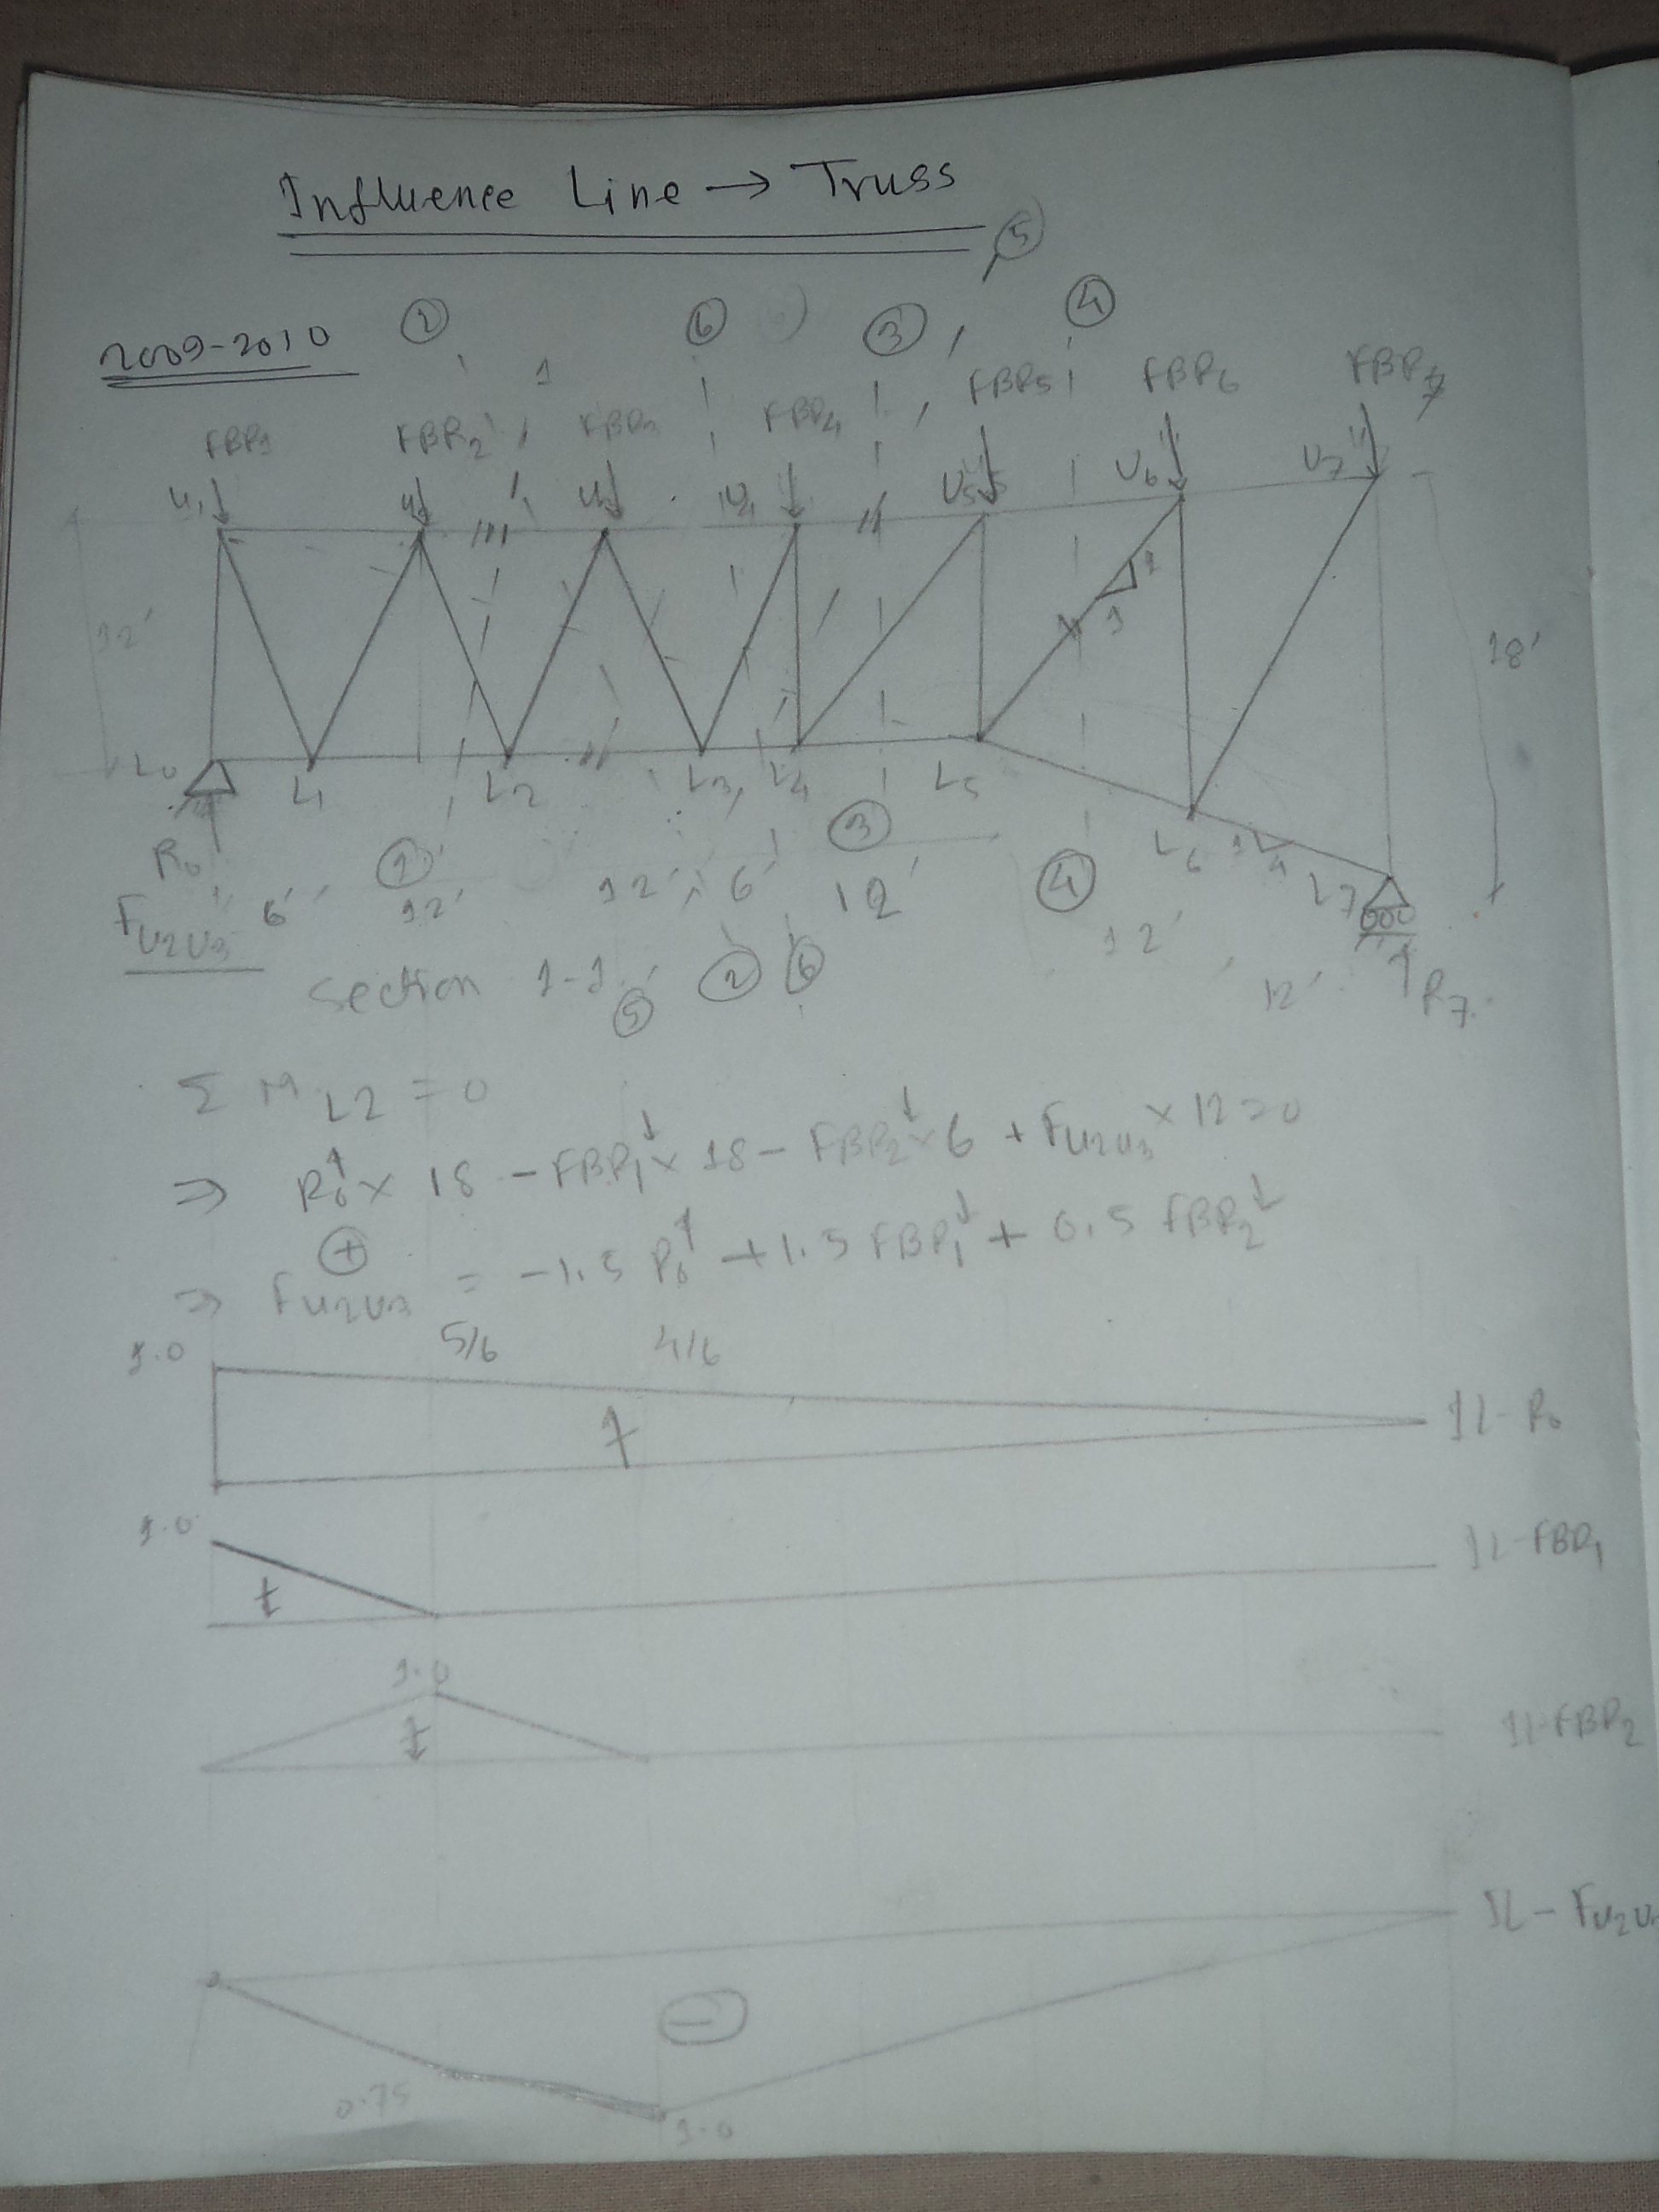 Influence Line → Truss
5
2009-2010 2 1 6 3 4
FBR1 FBR2 FBR3 FBR4 FBR5 FBR6 FBR7
U1 U2 U3 U4 U5 U6 U7
12'
1
1
18'
L0 L1 L2 L3 L4 L5 L6 L7
1 4
R0 6' 1 12' 12' 6' 3 12' 4 12' 12' R7
FU2U3
Section 1-1 5 2 6
Σ M L2 = 0
⇒ R0↑ × 18 - FBR1↓ × 18 - FBR2↓ × 6 + FU2U3 × 12 = 0
+
⇒ FU2U3 = -1.5 R0↑ + 1.5 FBR1↓ + 0.5 FBR2↓
1.0 5/6 4/6
+ IL-R0
1.0
+ IL-FBR1
1.0
+ IL-FBR2
IL-FU2U
-
0.75
1.0